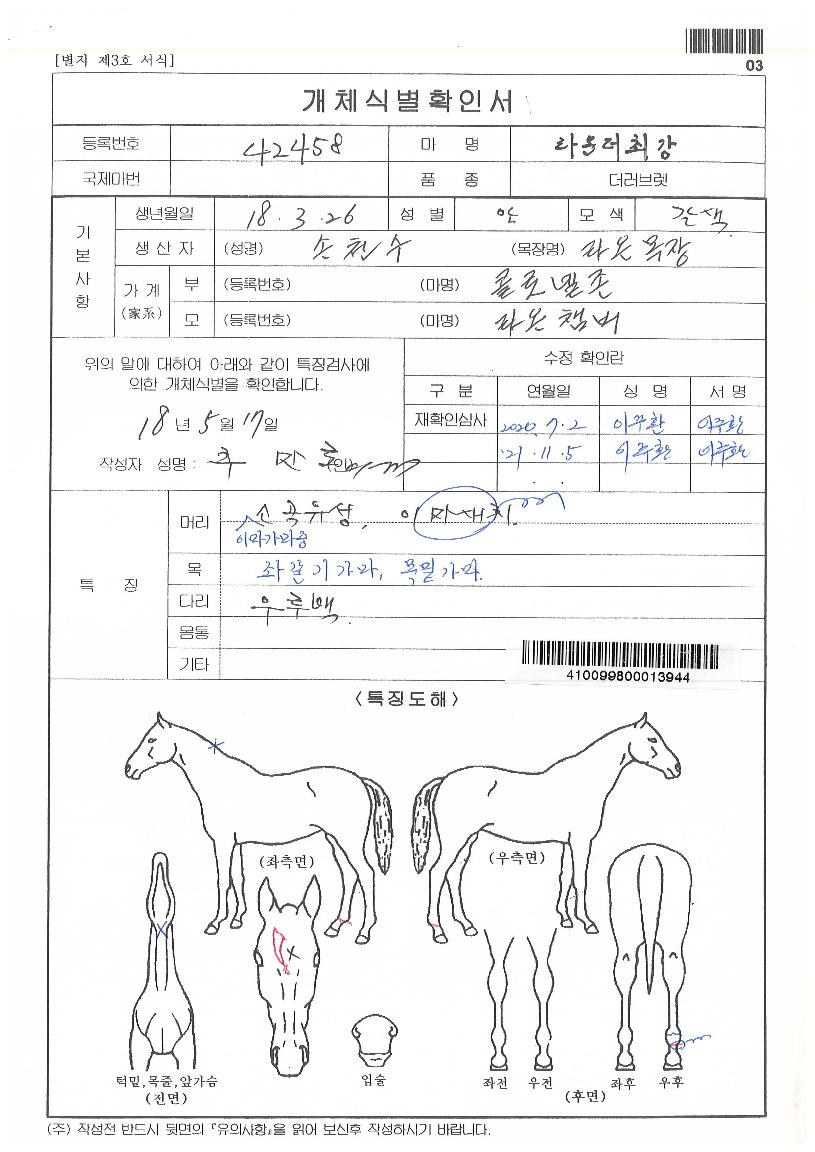 [별지 제3호 서식]
03
개체식별확인서
등록번호 42458 마 명 라운더최강
국제마번 품 종 더러브렛
기본사항
생년월일 18.3.26 성 별 암 모 색 갈색
생산자 (성명) 손천수 (목장명) 라온목장
가계 (家系) 부 (등록번호) (마명) 콜로넬존
모 (등록번호) (마명) 라온챔버
위의 말에 대하여 아래와 같이 특징검사에
의한 개체식별을 확인합니다.
18년 5월 17일
작성자 성명:
수정 확인란
구 분 연월일 성 명 서 명
재확인심사 2020.7.2
'21.11.5
특 징
머리 소곡유성,
이마가마중
목 좌갈기가마, 목밑가마.
다리 우후백
몸통
기타
410099800013944
<특징도해>
(좌측면) (우측면)
턱밑,목줄,앞가슴
(전면)
입술
좌전 우전 좌후 우후
(후면)
(주) 작성전 반드시 뒷면의 『유의사항』을 읽어 보신후 작성하시기 바랍니다.